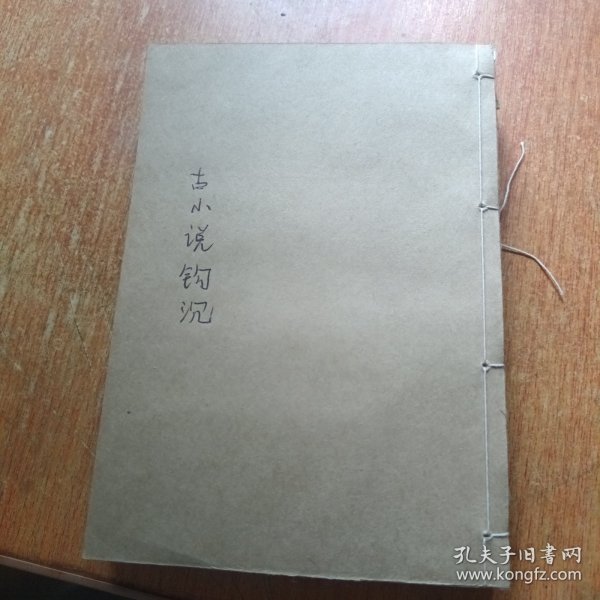 古小说钩沉
孔夫子旧書网
www.kongfz.com